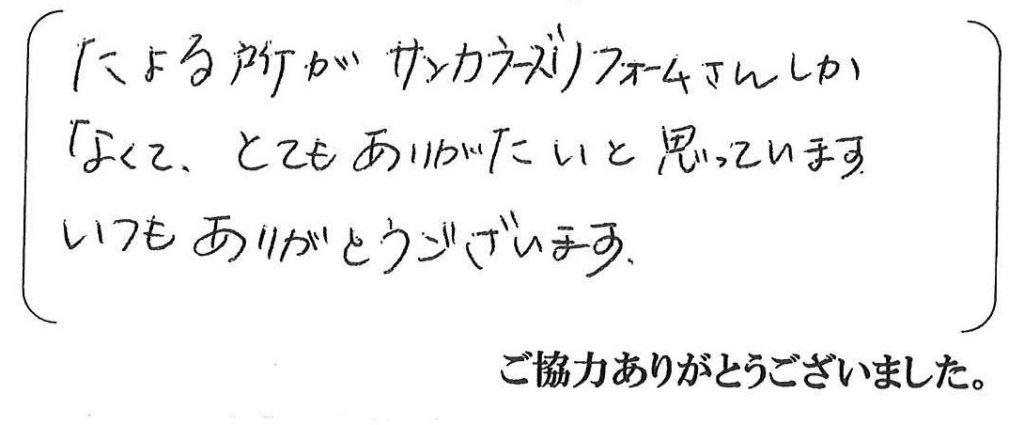 たよる所が サンカラーズリフォームさんしか
なくて、とてもありがたいと思っています
いつもありがとうございます。
ご協力ありがとうございました。